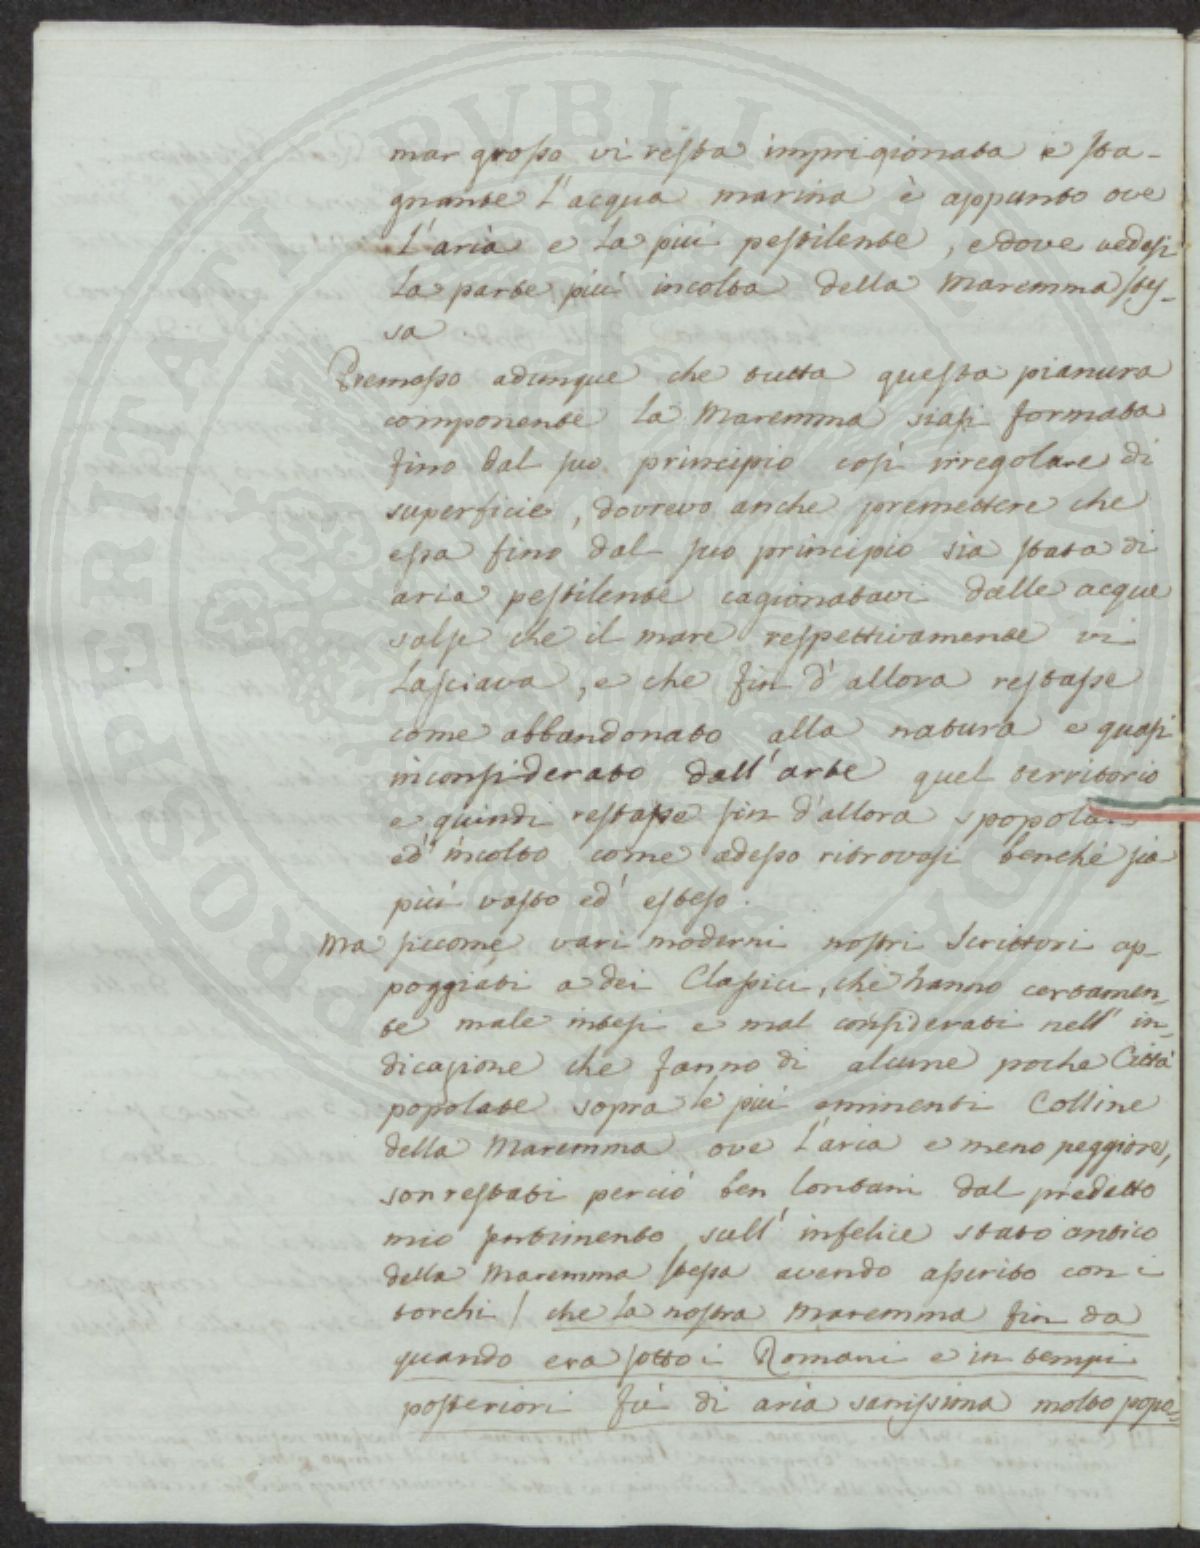 mar grosso vi resta imprigionata e sta-
gnante l'acqua marina è appunto ove
l'aria e la più pestilente, e dove vedesi
la parte più incolta della Maremma stes-
sa.
Premesso adunque che tutta questa pianura
componente la Maremma siasi formata
fino dal suo principio così irregolare di
superficie, dovrevo anche premettere che
essa fino dal suo principio sia stata di
aria pestilente cagionatavi dalle acque
salse che il mare respettivamente vi
lasciava, e che fin d'allora restasse
come abbandonato alla natura e quasi
inconsiderato dall'arte quel territorio
e quindi restasse fin d'allora spopola
ed incolto come adesso ritrovasi benché sia
più vasto ed esteso.
Ma siccome vari moderni nostri Scrittori ap-
poggiati a dei Classici, che hanno certamen-
te male intesi e mal considerati nell'in-
dicazione che fanno di alcune poche Città
popolate sopra le più eminenti Colline
della Maremma ove l'aria e meno peggiore,
son restati perciò ben lontani dal predetto
mio sentimento sull'infelice stato antico
della Maremma stessa avendo asserito con i
torchi / che la nostra Maremma fin da
quando era sotto i Romani e in tempi
posteriori fù di aria sanissima molto popo-
PROSPERITATI PUBLICAE